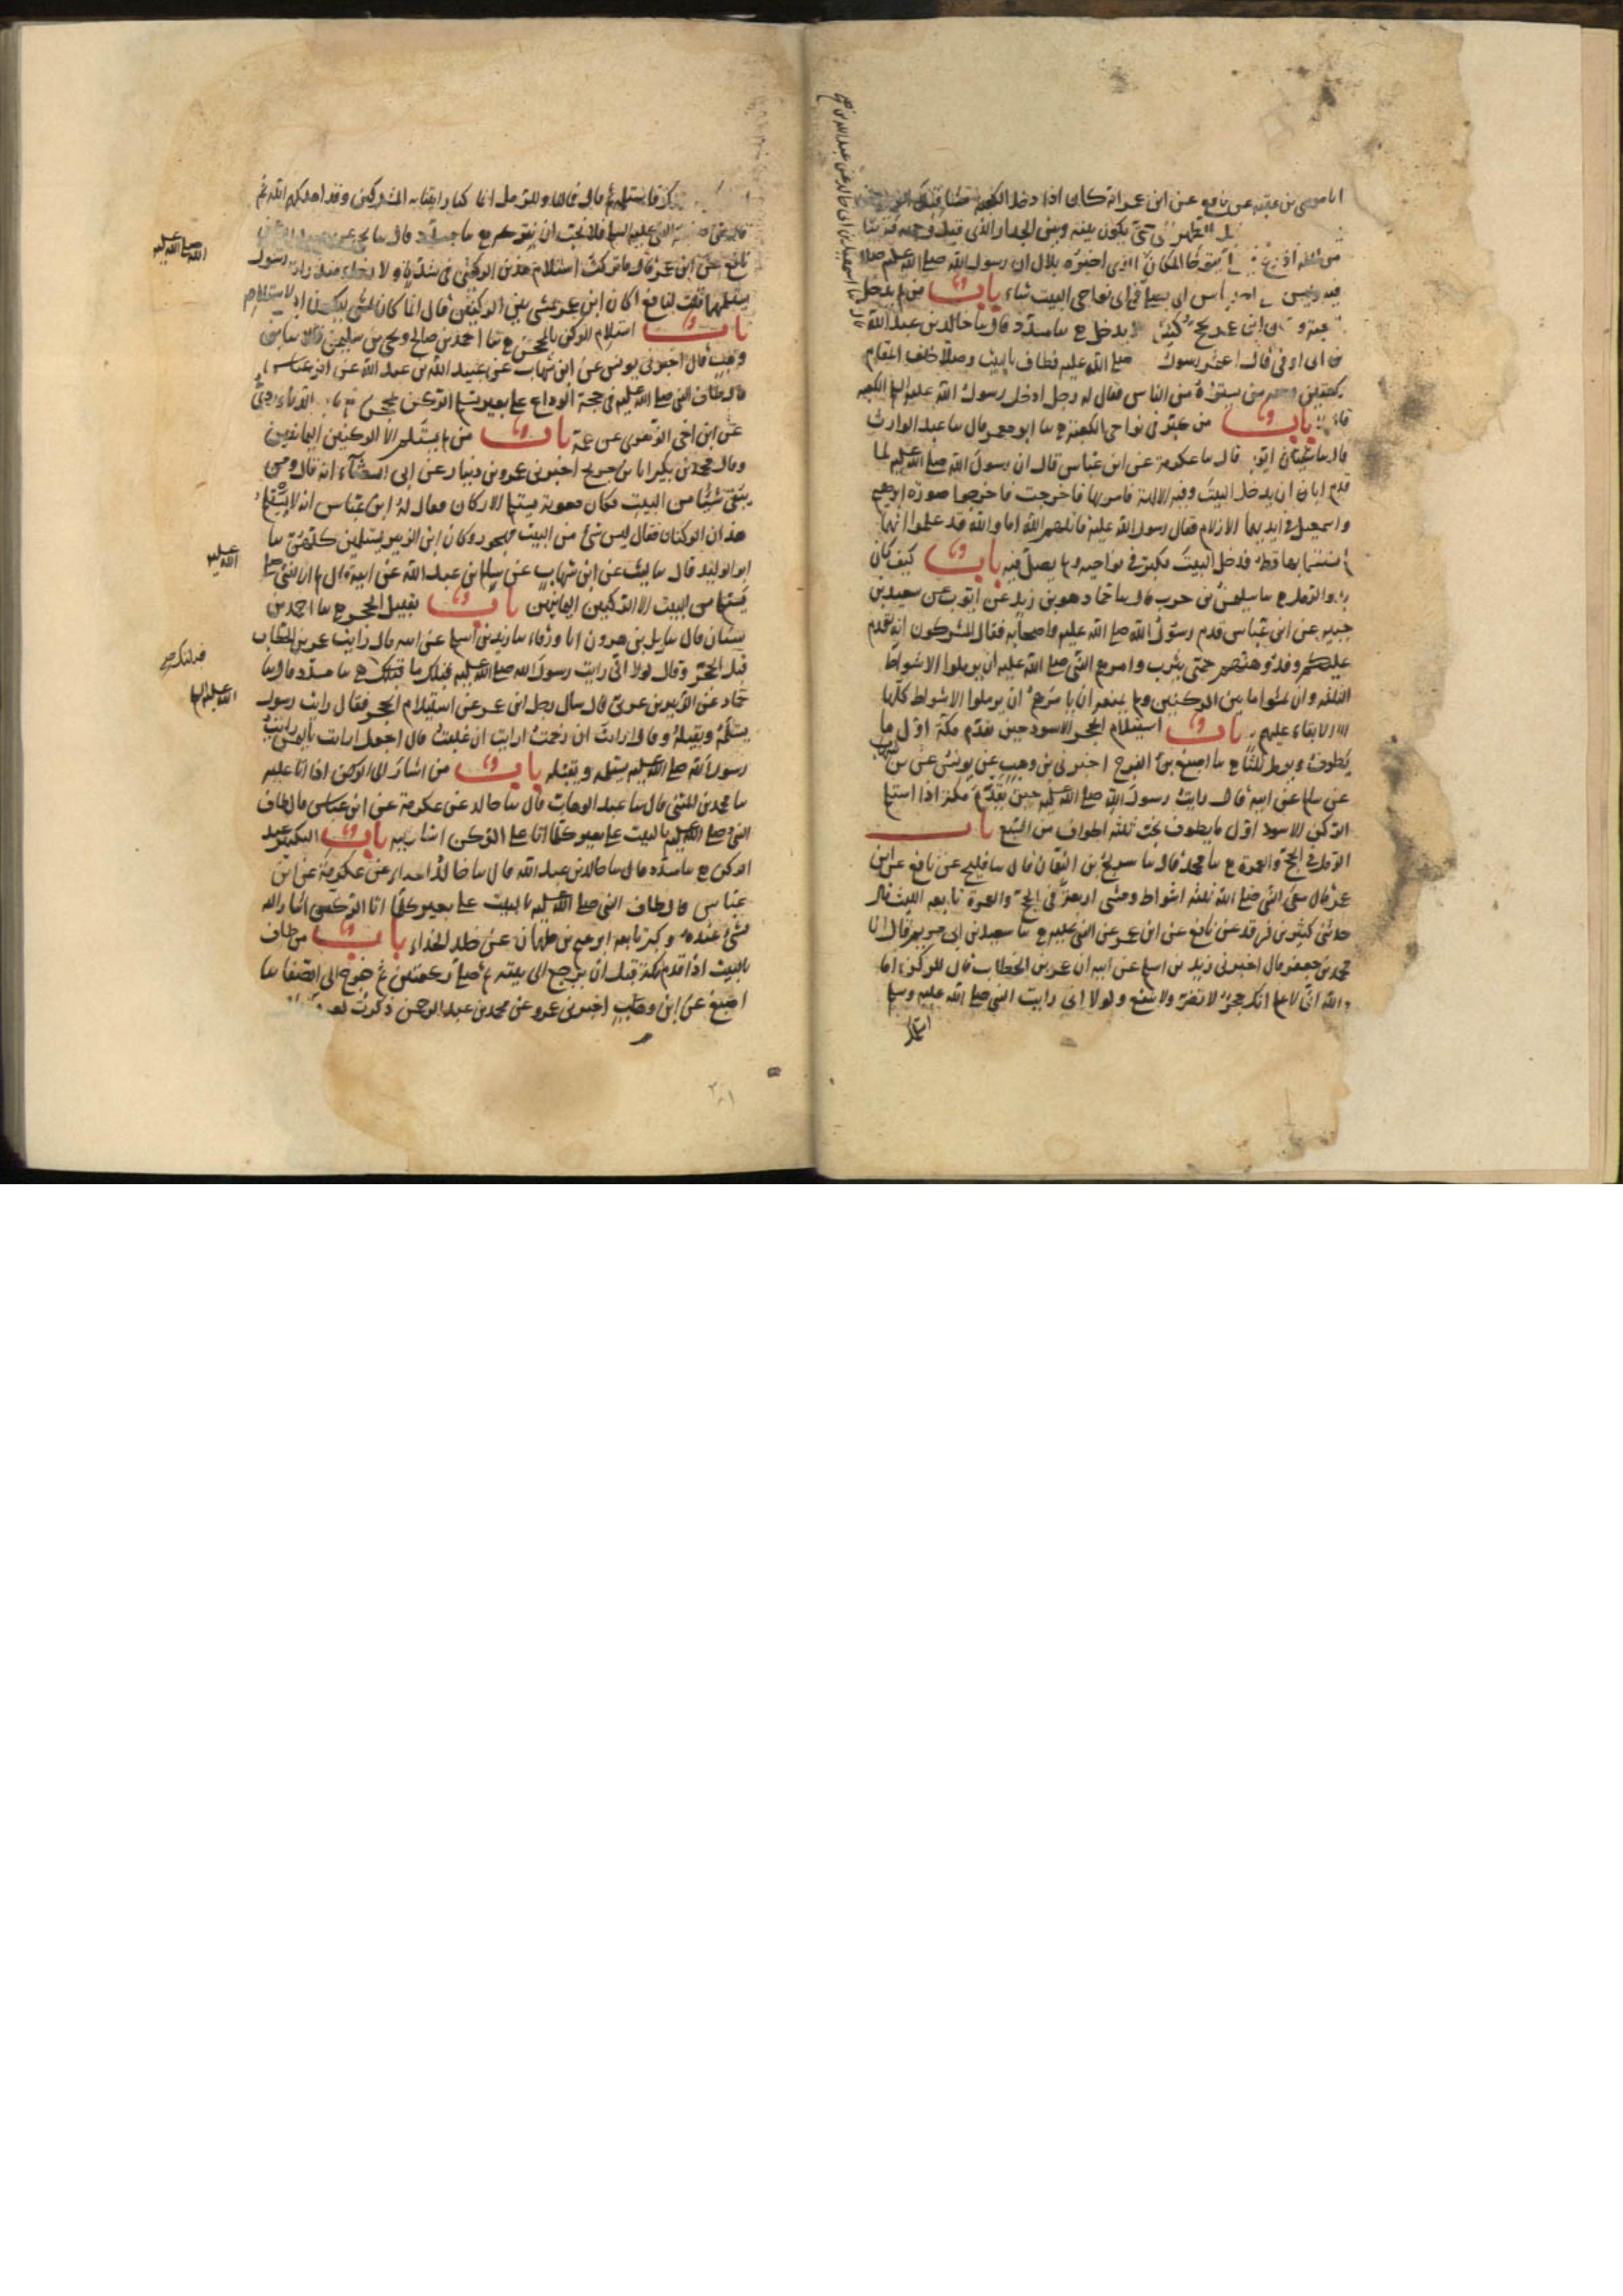 انا موسى بن عقبة عن نافع عن ابن عمر انه كان اذا دخل الكعبة مشا قبل
الظهر حتى يكون بينه وبين الجدار الذى قبل وجهه قريبا
من ثلثة اذرع يتوخا المكان الذى اخبره بلال ان رسول الله صلى الله عليه صلا
فيه وليس باس ان يصلى فى اى نواحى البيت شاء باب من لم يدخل
وكان ابن عمر يحج كثيرا لا يدخل ح ثنا مسدد قال ثنا خالد بن عبد الله
بن ابى اوفى قال اعتمر رسول صلى الله عليه فطاف بالبيت وصلا خلف المقام
ركعتين ومعه من يستره من الناس فقال له رجل ادخل رسول الله عليه السلم الكعبة
قال لا باب من كبر فى نواحى الكعبة ح ثنا ابو معمر قال ثنا عبد الوارث
قال ثنا ايوب قال ثنا عكرمة عن ابن عباس قال ان رسول الله صلى الله عليه لما
قدم ابا ان يدخل البيت وفيه الالهة فامر بها فاخرجت فاخرجوا صورة ابرهيم
واسمعيل فى ايديهما الازلام فقال رسول الله عليه قاتلهم الله اما والله قد علموا انهما
لم يستقسما بها قط فدخل البيت فكبر فى نواحيه ولم يصل فيه باب كيف كان
بدء الرمل ح ثنا سليمن بن حرب قال ثنا حماد هو بن زيد عن ايوب عن سعيد بن
جبير عن ابن عباس قدم رسول الله صلى الله عليه واصحابه فقال المشركون انه يقدم
عليكم وقد وهنهم حمى يثرب وامرهم النبى صلى الله عليه ان يرملوا الاشواط
الثلثة وان يمشوا ما بين الركنين ولم يمنعه ان يامرهم ان يرملوا الاشواط كلها
الا الابقاء عليهم باب استلام الحجر الاسود حين يقدم مكة اول ما
يطوف ويرمل ثلثا ح ثنا اصبغ بن الفرج اخبرنى بن وهب عن يونس عن بن شهاب
عن سالم عن ابيه قال رايت رسول الله صلى الله عليه حين يقدم مكة اذا استلم
الركن الاسود اول ما يطوف يخب ثلثة اطواف من السبع باب
الرمل فى الحج والعمرة ح ثنا محمد قال ثنا سريج بن النعمان قال ثنا فليح عن نافع عن ابن
عمر قال سعى النبى صلى الله ثلثة اشواط ومشى اربعة فى الحج والعمرة تابعه الليث قال
حدثنى كثير بن فرقد عن نافع عن ابن عمر عن النبى عليه ح ثنا سعيد بن ابى مريم قال انا
محمد بن جعفر قال اخبرنى زيد بن اسلم عن ابيه ان عمر بن الخطاب قال للركن اما
والله انى لاعلم انك حجر لا تضر ولا تنفع ولولا انى رايت النبى صلى الله عليه وسلم
فاستلمه ثم قال فما لنا وللرمل انما كنا رايينا به المشركين وقد اهلكهم الله ثم
قال شى صنعه النبى عليه السلم فلا نحب ان نتركه ح ثنا مسدد قال ثنا يحيى عن
نافع عن ابن عمر قال ما تركت استلام هذين الركنين فى شدة ولا رخاء منذ رايت رسول
يستلمهما قلت لنافع اكان ابن عمر يمشى بين الركنين قال انما كان يمشى ليكون ايسر لاستلامه
باب استلام الركن بالمحجن ح ثنا احمد بن صالح ويحيى بن سليمن قالا ثنا بن
وهب قال اخبرنى يونس عن ابن شهاب عن عبيد الله بن عبد الله عن ابن عباس
قال طاف النبى صلى الله عليه فى حجة الوداع على بعير يستلم الركن بمحجن تابعه الدراوردى
عن ابن اخى الزهرى عن عمه باب من لم يستلم الا الركنين اليمانيين
وقال محمد بن بكير انا بن جريج اخبرنى عمرو بن دينار عن ابى الشعثاء انه قال ومن
يتقى شيئا من البيت وكان معوية يستلم الاركان فقال له ابن عباس انه لا يستلم
هذان الركنان فقال ليس شى من البيت مهجور وكان ابن الزبير يستلمهن كلهن ثنا
ابو الوليد قال ثنا ليث عن ابن شهاب عن سالم بن عبد الله عن ابيه قال لم ار النبى صلى
يستلم من البيت الا الركنين اليمانيين باب تقبيل الحجر ح ثنا احمد بن
سنان قال ثنا يزيد بن هرون انا ورقاء ثنا زيد بن اسلم عن ابيه قال رايت عمر بن الخطاب
قبل الحجر وقال لولا انى رايت رسول الله صلى الله عليه قبلك ما قبلتك ح ثنا مسدد قال ثنا
حماد عن الزبير بن عربى قال سال رجل ابن عمر عن استلام الحجر فقال رايت رسول
يستلمه ويقبله وقال ارايت ان زحمت ارايت ان غلبت قال اجعل ارايت باليمن رايت
رسول الله صلى الله عليه يستلمه ويقبله باب من اشار الى الركن اذا اتا عليه
ثنا محمد بن المثنى قال ثنا عبد الوهاب قال ثنا خالد عن عكرمة عن ابن عباس قال طاف
النبى صلى الله عليه بالبيت على بعير كلما اتا على الركن اشار اليه باب التكبير عند
الركن ح ثنا مسدد قال ثنا خالد بن عبد الله قال ثنا خالد الحذاء عن عكرمة عن ابن
عباس قال طاف النبى صلى الله عليه بالبيت على بعير كلما اتا الركن اشار اليه
بشى عنده وكبر تابعه ابرهيم بن طهمان عن خالد الحذاء باب من طاف
بالبيت اذا قدم مكة قبل ان يرجع الى بيته ثم صلى ركعتين ثم خرج الى الصفا ثنا
اصبغ عن ابن وهب اخبرنى عمرو عن محمد بن عبد الرحمن ذكرت لعروة